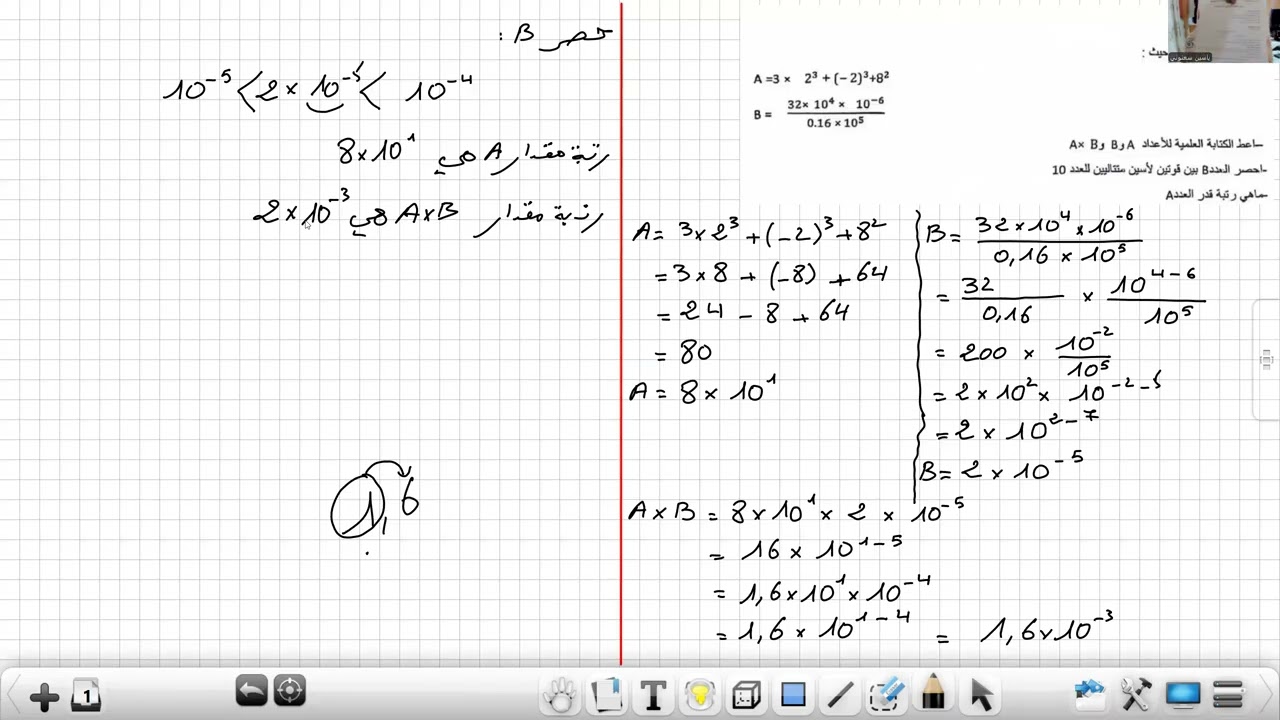 حصر B :
10⁻⁵ < 2 × 10⁻⁵ < 10⁻⁴
رتبة مقدار A هي 8×10¹
رتبة مقدار A×B هي 2×10⁻³
1,6
ياسين سعنوني
حيث :
A =3 × 2³ + (−2)³+8²
B = (32× 10⁴ × 10⁻⁶) / (0.16 ×10⁵)
–اعط الكتابة العلمية للأعداد A وB و A× B
-احصر العددB بين قوتين لأسين متتاليين للعدد 10
–ماهي رتبة قدر العددA
A = 3×2³ + (−2)³ + 8²
= 3×8 + (−8) + 64
= 24 − 8 + 64
= 80
A = 8 × 10¹
B = (32×10⁴×10⁻⁶) / (0,16 × 10⁵)
= 32 / 0,16 × 10⁴⁻⁶ / 10⁵
= 200 × 10⁻² / 10⁵
= 2 × 10² × 10⁻²⁻⁵
= 2 × 10²⁻⁷
B = 2 × 10⁻⁵
A×B = 8×10¹ × 2 × 10⁻⁵
= 16 × 10¹⁻⁵
= 1,6×10¹×10⁻⁴
= 1,6 × 10¹⁻⁴ = 1,6×10⁻³
1